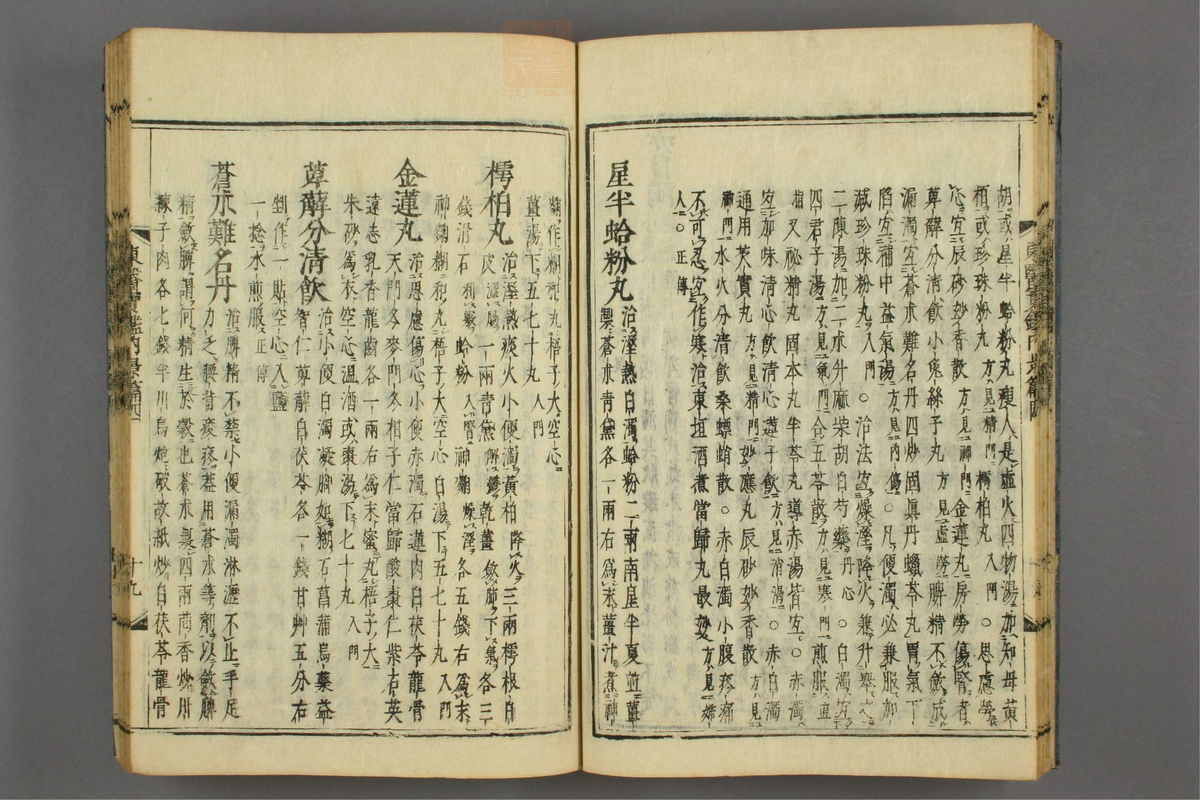 胡或星半蛤粉丸瘦人是虛火四物湯加知母黃
栢或珍珠粉丸方見精門樗柏丸入門○思慮勞
心宜辰砂妙香散方見神門金蓮丸房勞傷腎者
萆薢分淸飮小兔絲子丸方見虛勞脾精不斂成
漏濁宜蒼朮難名丹四炒固眞丹蠟苓丸胃氣下
陷宜補中益氣湯方見內傷○凡便濁必兼服加
減珍珠粉丸入門○治法宜燥濕降火兼升擧之
二陳湯加二朮升麻柴胡白芍藥丹心○白濁宜
四君子湯方見氣門合五苓散方見寒門煎服宜
又秘精丸固本丸半苓丸導赤湯皆宜○赤濁
宜加味淸心飮淸心蓮子飮方見消渴○赤白濁
通用芡實丸方見精門妙應丸辰砂妙香散方見
神門水火分淸飮桑螵蛸散○赤白濁小腹疼痛
不可忍宜作寒治東垣酒煮當歸丸最妙方見婦
人○正傳
星半蛤粉丸治濕熱白濁蛤粉二兩南星半夏並薑
製蒼朮靑黛各一兩右爲末薑汁煮神
麴作糊和丸梧子大空心
薑湯下五七十丸入門
樗柏丸治濕熱痰火小便濁黃柏降火三兩樗根白
皮澁腸一兩靑黛解鬱乾薑斂肺下氣各三
錢滑石利竅蛤粉入腎神麴燥濕各五錢右爲末
神麴糊和丸梧子大空心白湯下五七十丸入門
金蓮丸治思慮傷心小便赤濁石蓮肉白茯苓龍骨
天門冬麥門冬柏子仁當歸酸棗仁紫石英
遠志乳香龍齒各一兩右爲末蜜丸梧子大
朱砂爲衣空心溫酒或棗湯下七十丸入門
萆薢分淸飮治小便白濁凝脚如糊石菖蒲烏藥益
智仁萆薢白茯苓各一錢甘艸五分右
剉作一貼空心入鹽
一捻水煎服正傳
蒼朮難名丹治脾精不禁小便漏濁淋瀝不止手足
力乏腰背痠疼蓋用蒼朮等劑以斂脾
精斂脾謂何精生於穀也蒼朮製四兩茴香炒川
練子肉各七錢半川烏炮破故紙炒白茯苓龍骨
東醫寶鑑內景篇四
十九